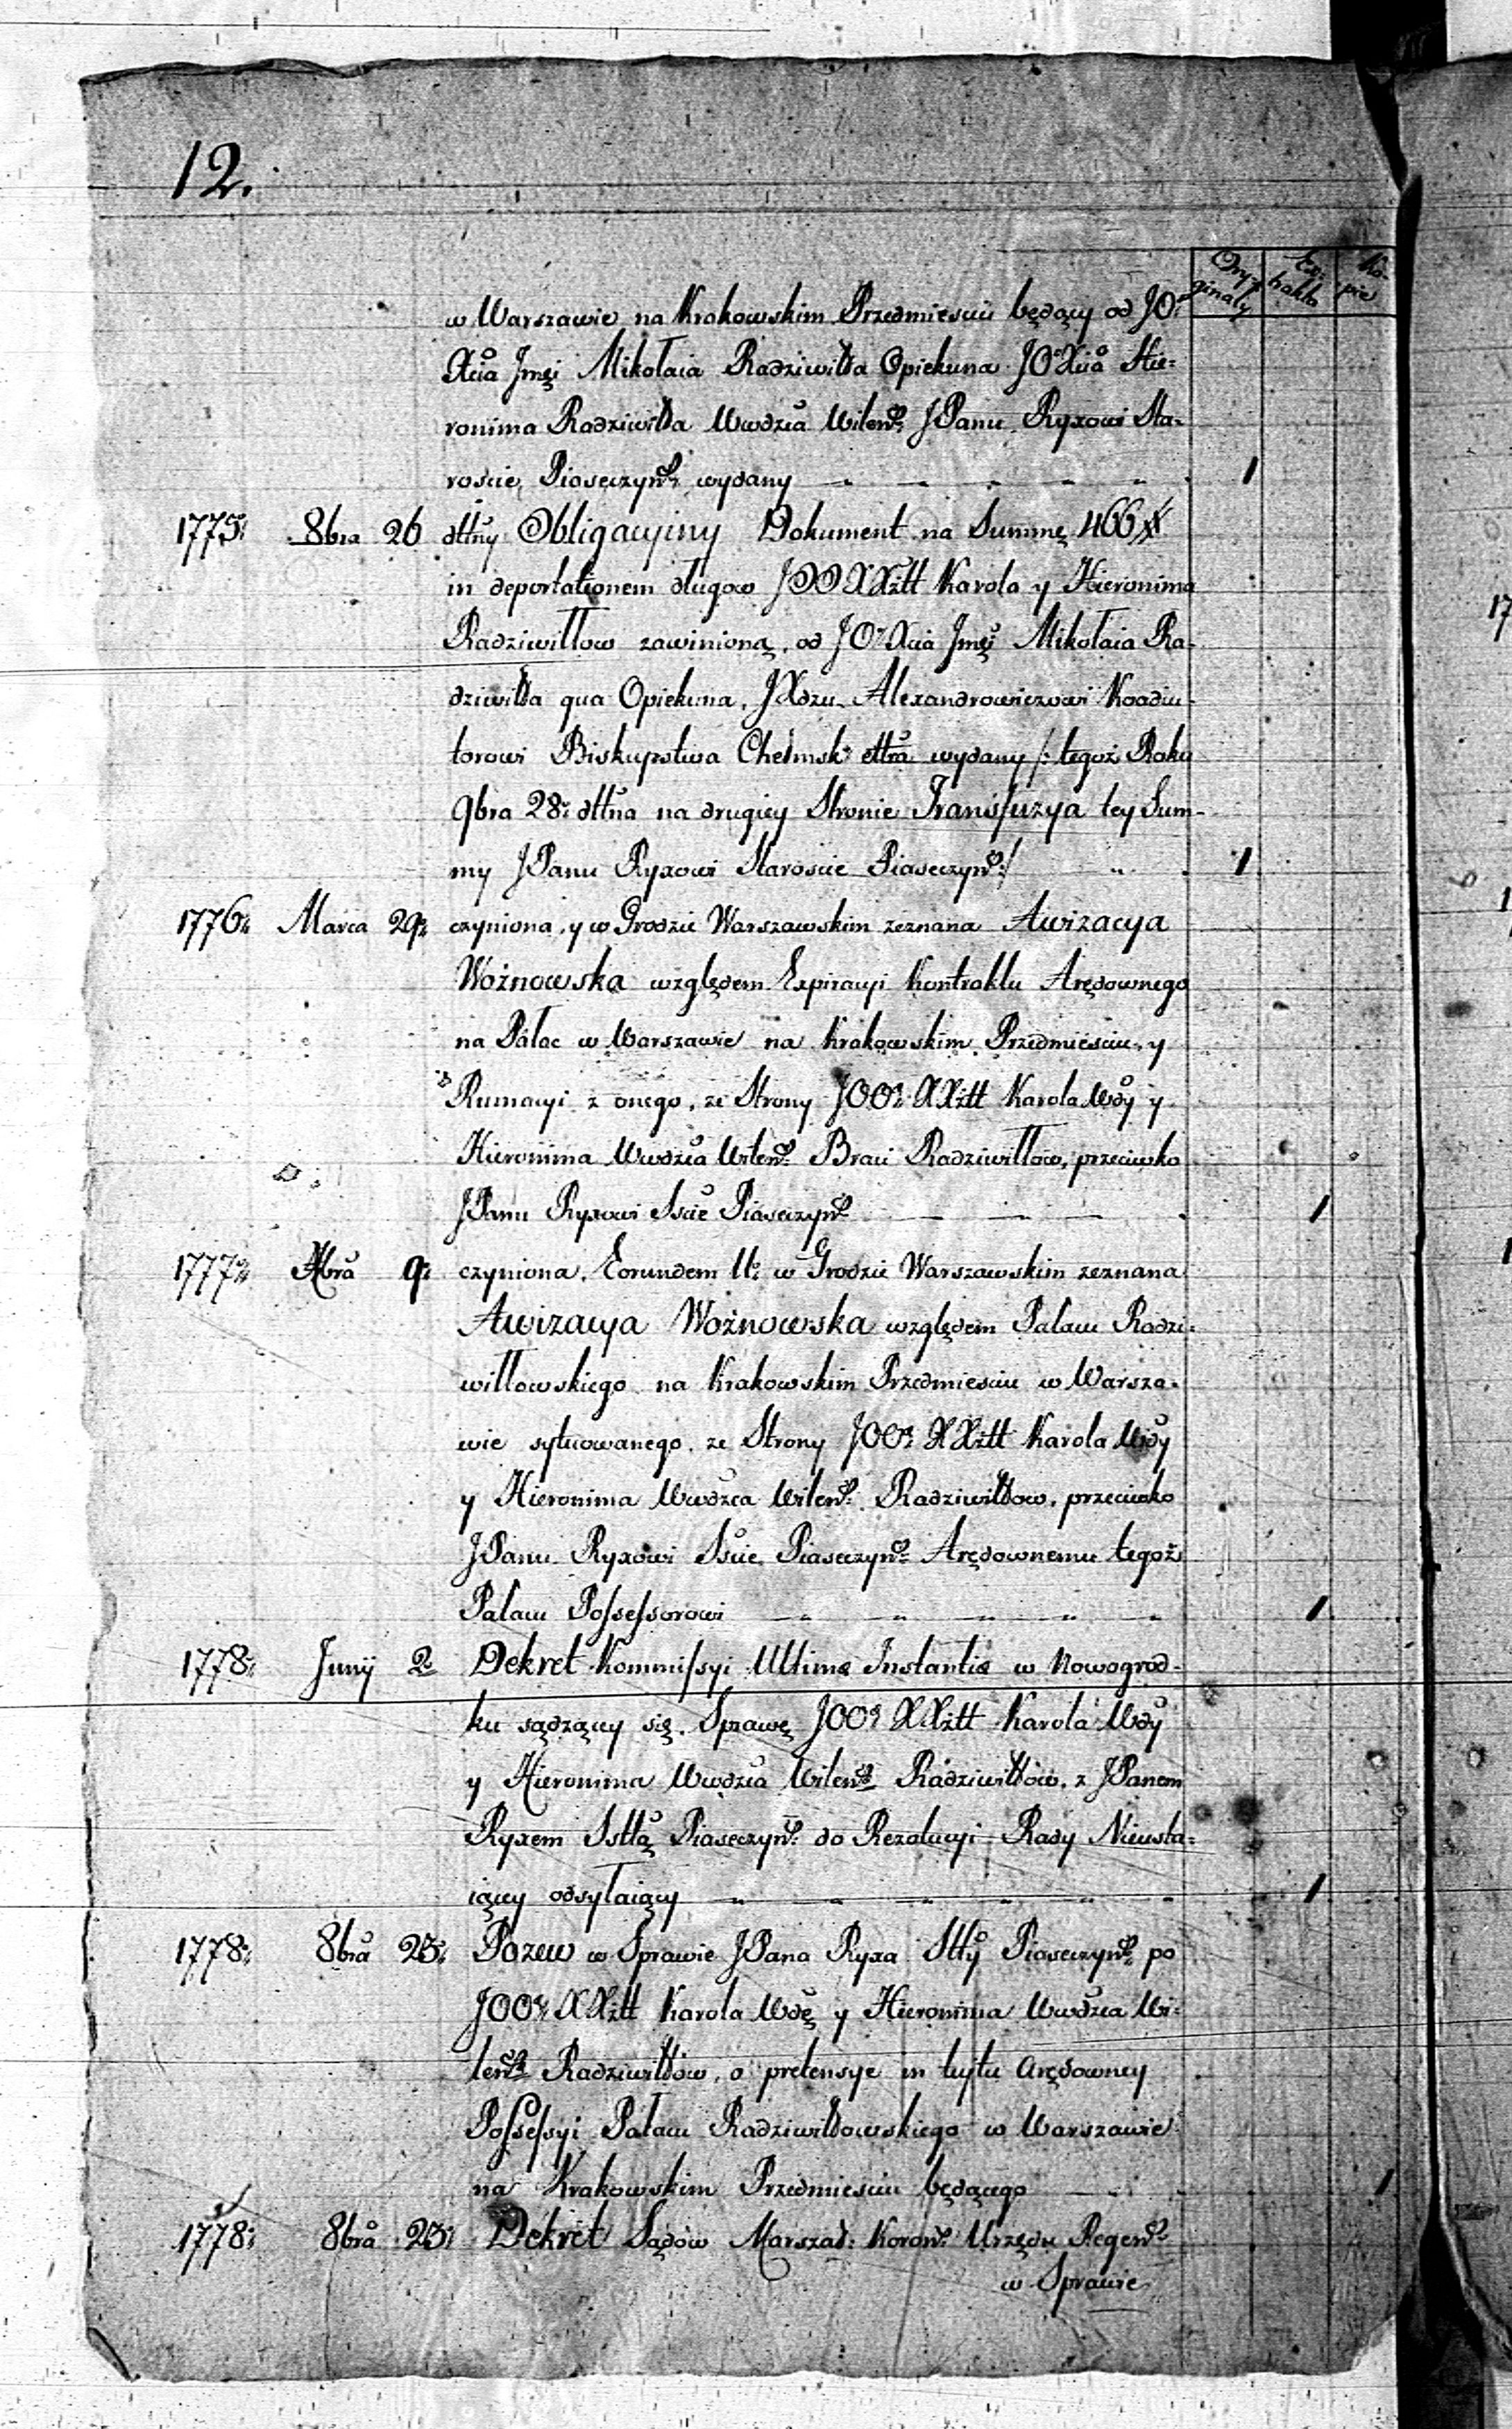 12.
Ory-
ginały
Ex-
trakta
Ko-
pie
w Warszawie na Krakowskim Przedmiesciu będący od JO:
Xcia Jmci Mikołaia Radziwiłła Opiekuna JO Xcia Hie-
ronima Radziwiłła Wwdzca Wileń: JPanu Ryxowi Sta-
roscie Piaseczyń: wydany
1775: 8bra 26 dttny Obligacyiny Dokument na Summę 466
in deportationem długow JOO XXżtt Karola y Hieronima
Radziwiłłow zawinioną, od JO Xcia Jmci Mikołaia Ra-
dziwiłła qua Opiekuna, JXdzu Alexandrowiczowi Koadiu-
torowi Biskupstwa Chełmsk: wydany /: tegoż Roku
9bra 28: dttna na drugiey Stronie Transfuzya tey Sum-
my JPanu Ryxowi Staroscie Piaseczyń:/
1776: Marca 29: czyniona, y w Grodzie Warszawskim zeznana Awizacya
Woźnowska względem Expiracyi Kontraktu Arędownego
na Pałac w Warszawie na Krakowskim Przedmiesciu, y
Rumacyi z onego, ze Strony JOO: XXżtt Karola Wdy y
Hieronima Wwdzca Wileń: Braci Radziwiłłow, przeciwko
JPanu Ryxowi Sscie Piaseczyń:
1777: Xbra 9: czyniona, Eorundem 11: w Grodzie Warszawskim zeznana
Awizacya Woźnowska względem Pałacu Radzi-
wiłłowskiego na Krakowskim Przedmiesciu w Warsza-
wie sytuowanego, ze Strony JOO: XXżtt Karola Wdy
y Hieronima Wwdzca Wileń: Radziwiłłow, przeciwko
JPanu Ryxowi Sscie Piaseczyń: Arędownemu tegoż
Pałacu Possessorowi
1778: Junij 2 Dekret Kommissyi Ultimæ Instantiæ w Nowogrod-
ku sądzący się, Sprawę JOO: XXżtt Karola Wdy
y Hieronima Wwdzca Wileń: Radziwiłłow, z JPanem
Ryxem Sttą Piaseczyń: do Rezolucyi Rady Nieusta-
iącey odsyłaiący
1778: 8bra 23: Pozew w Sprawie JPana Ryxa Stty Piaseczyń: po
JOO: XXżtt Karola Wdę y Hieronima Wwdzca Wi-
leń: Radziwiłłow, o pretensye in tytu Arędowney
Possessyi Pałacu Radziwiłłowskiego w Warszawie
na Krakowskim Przedmiesciu będącego
1778: 8bra 23: Dekret Sądow Marszał: Koron: Urzędu Regeń:
w Sprawie